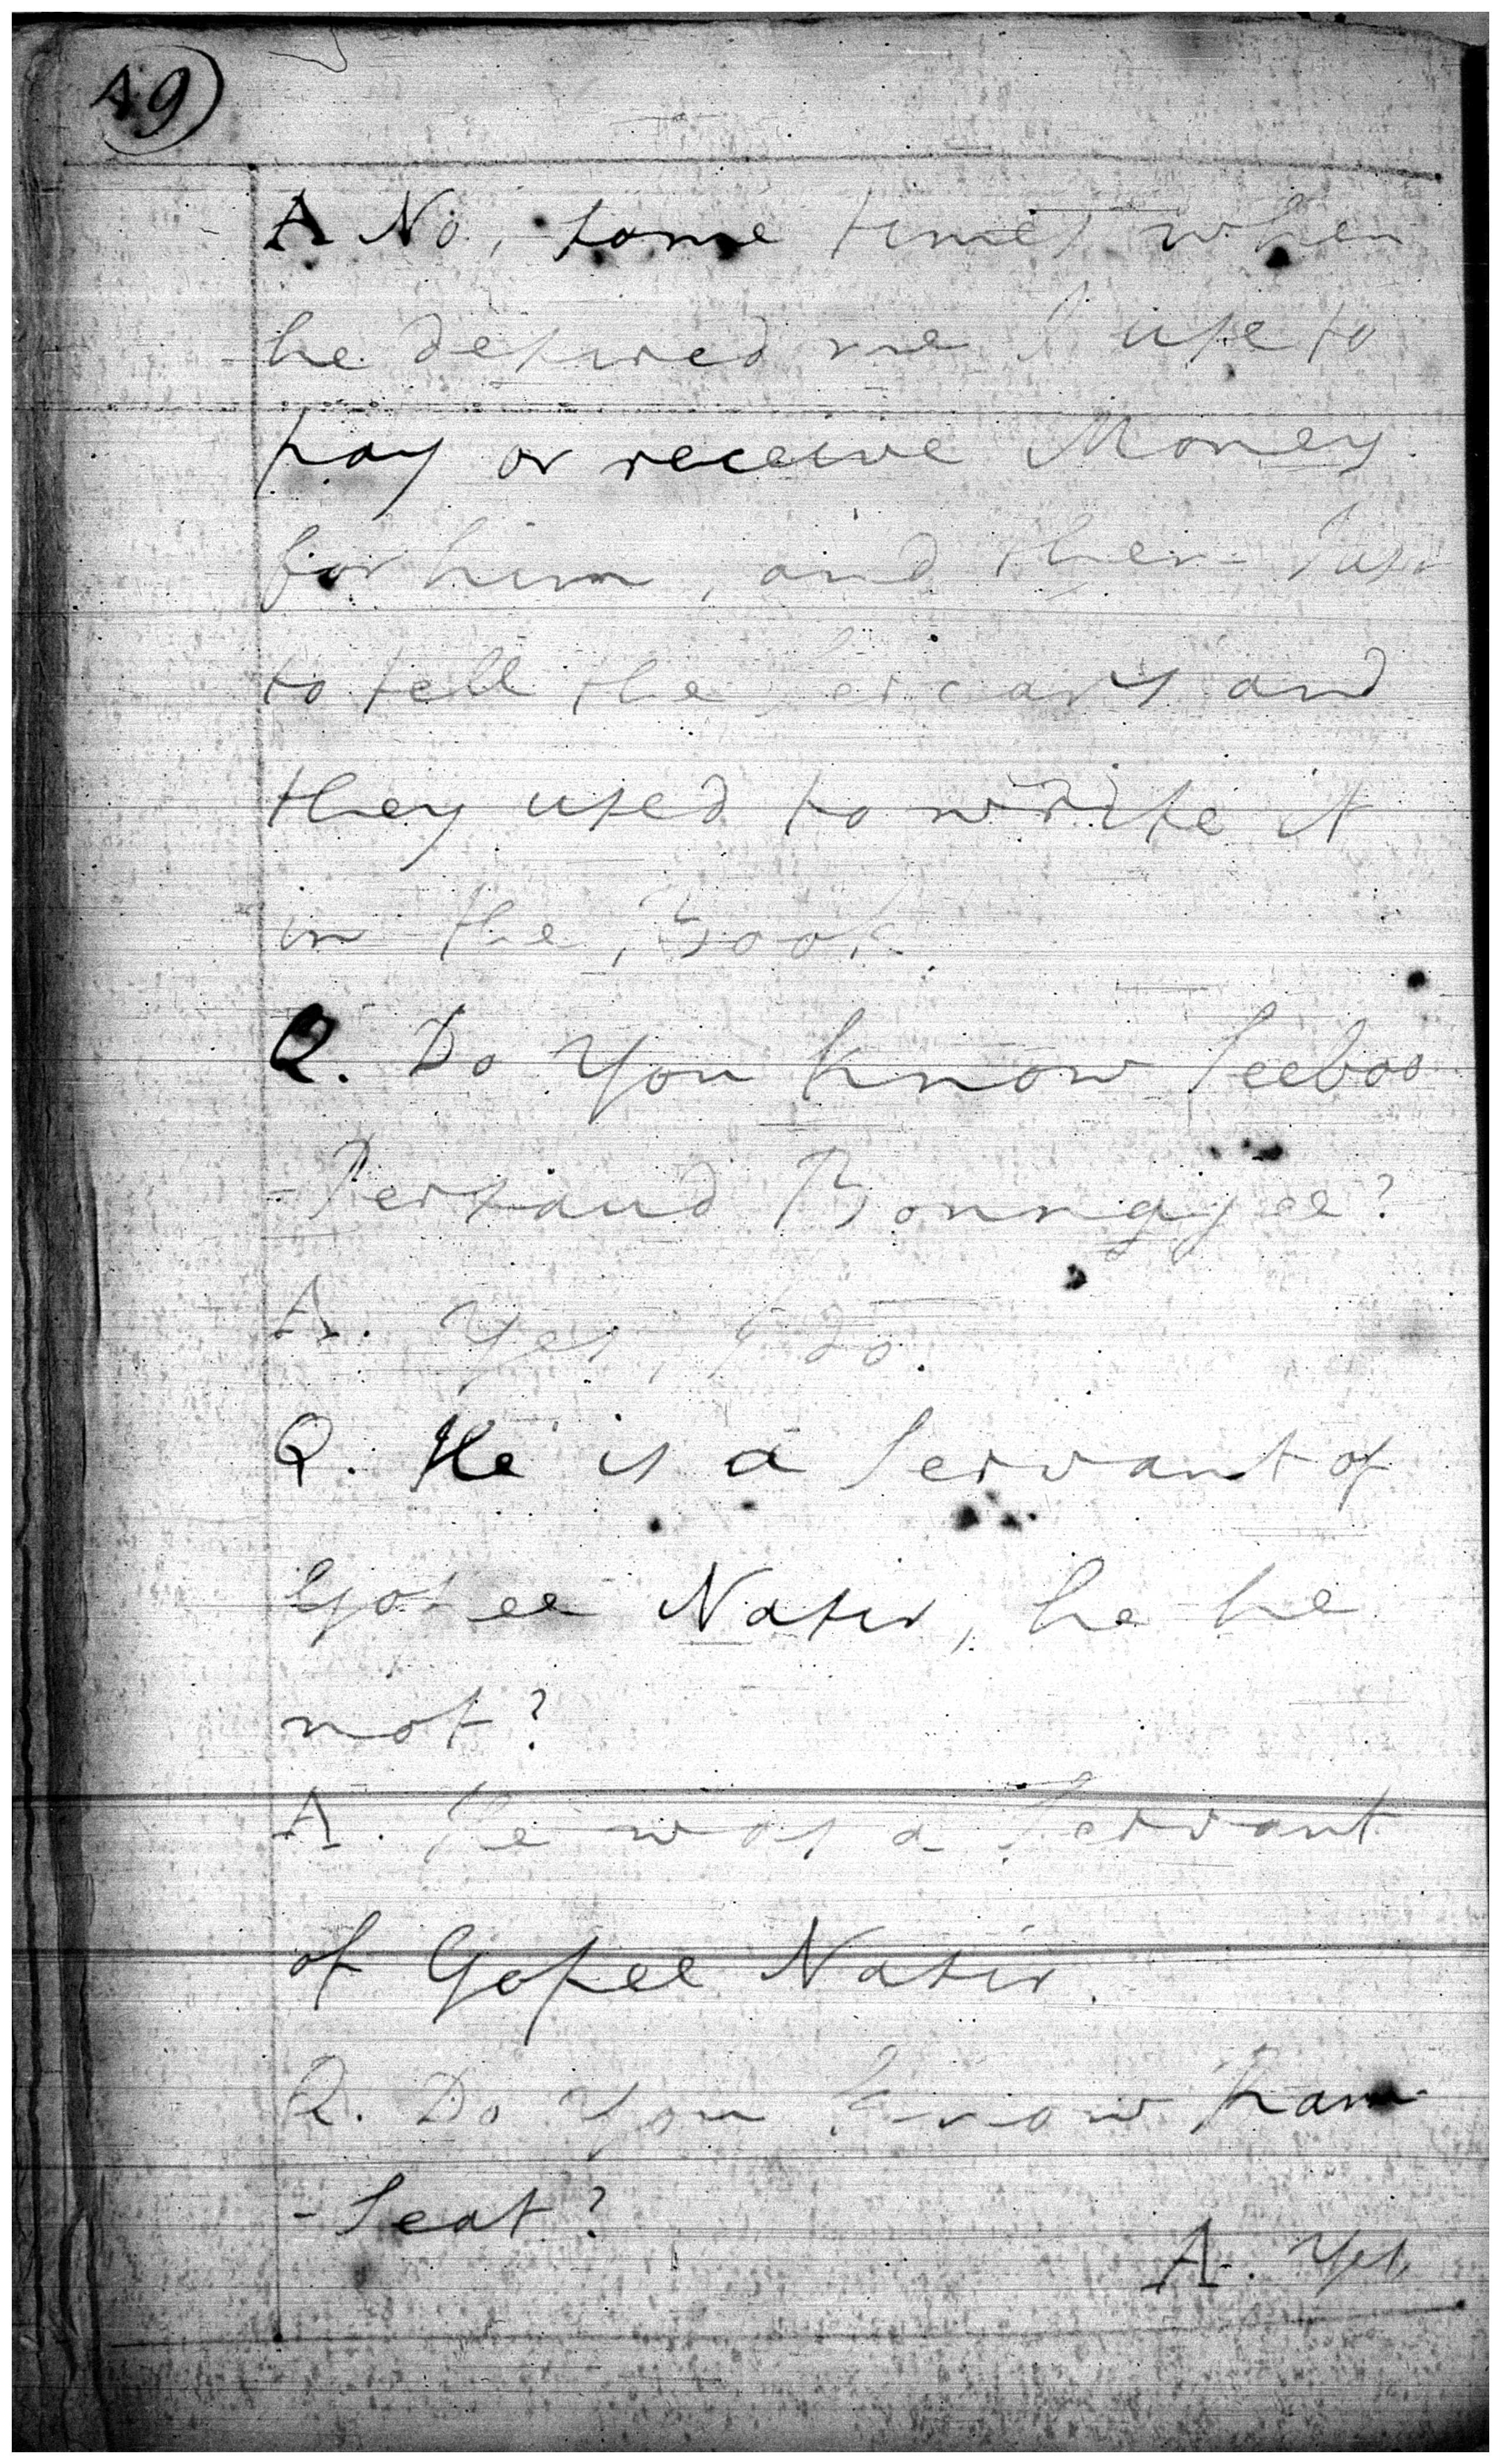 49)
A No, some times when
he desired me I use to
pay or receive Money
for him, and then I use
to tell the Sircars and
they used to write it
in the Book.
Q. Do you know Seeboo
-Persaud Bonnagjee?
A. Yes, I do.
Q. He is a Servant of
Gopee Nasir, he he
not?
A. He was a Servant
of Gopee Nasir.
Q. Do you know Ram
-Seat?
A. Yes,